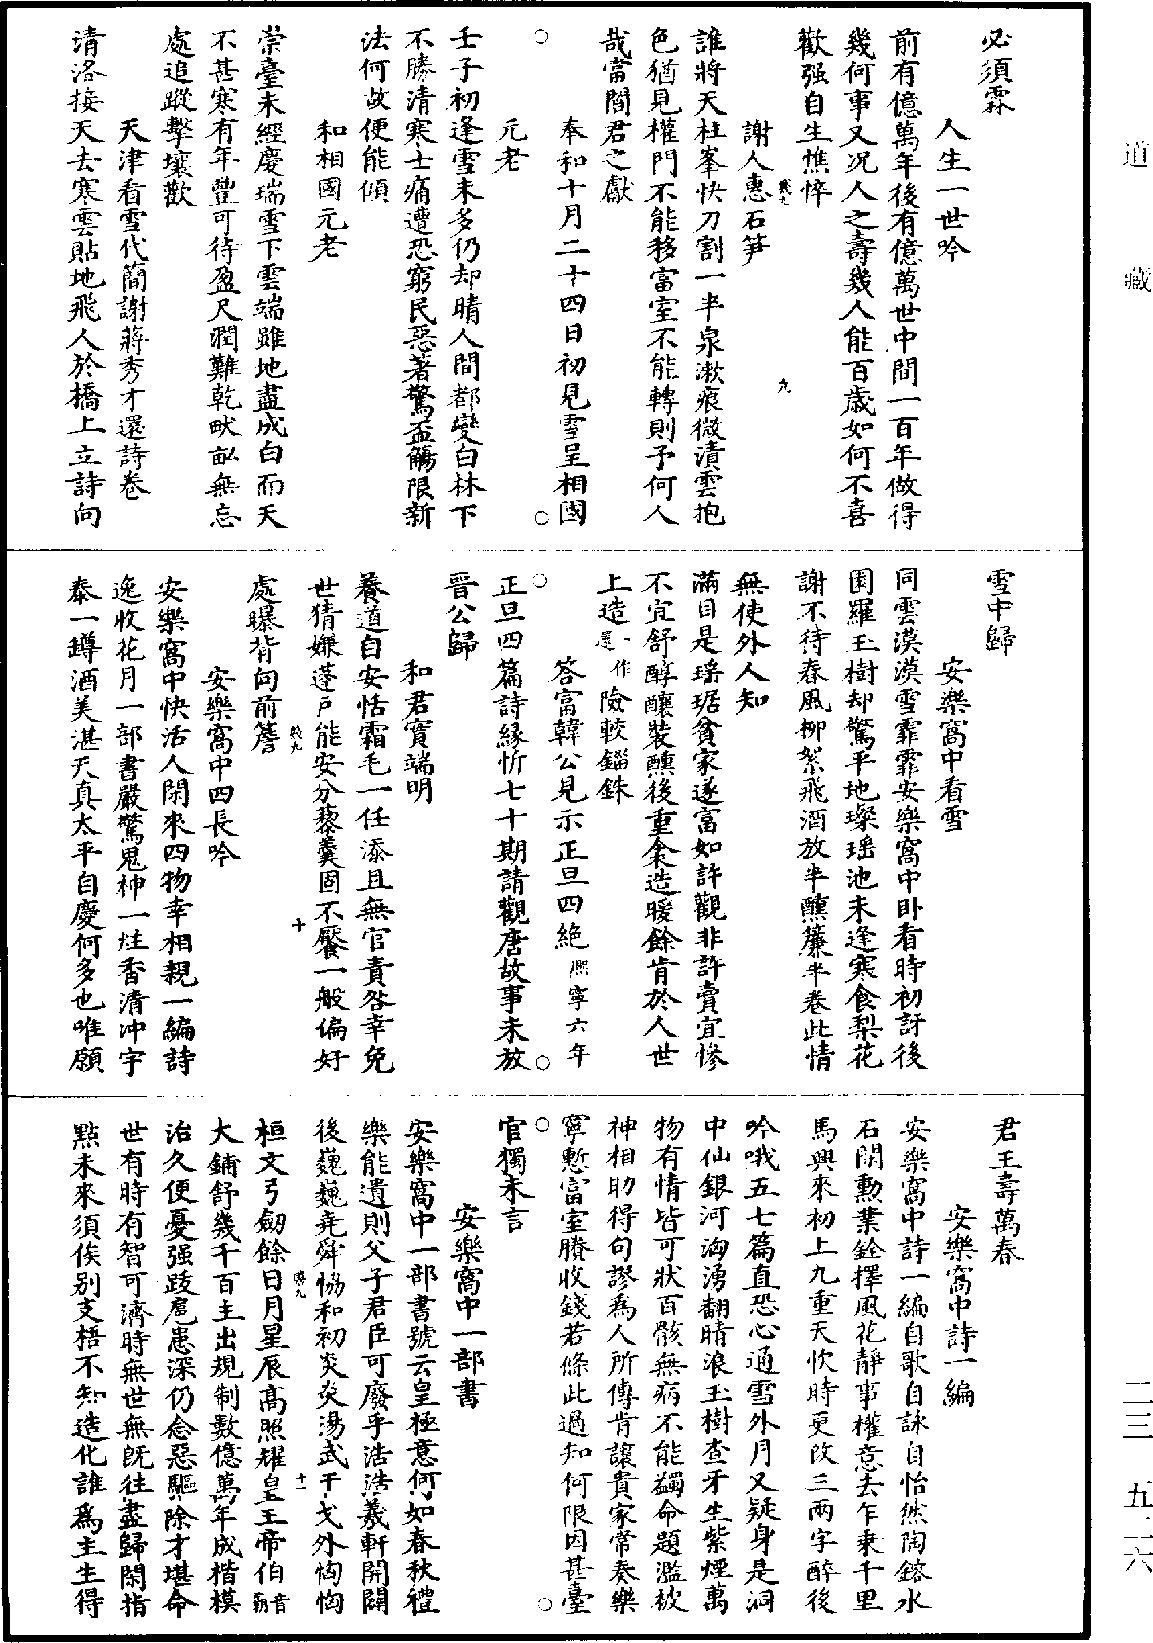 必須霖
人生一世吟
前有億萬年後有億萬世中間一百年做得
幾何事又況人之壽幾人能百歲如何不喜
歡强自生憔悴
謝人惠石笋
誰將天柱峯快刀割一半泉漱痕微漬雲抱
色猶見權門不能移富室不能轉則予何人
哉當閽君之獻
奉和十月二十四日初見雪呈相國
元老
壬子初逢雪未多仍却晴人間都變白林下
不勝清寒士痛遭恐窮民惡著驚盃觴限新
法何故便能傾
和相國元老
崇臺未經慶瑞雪下雲端雖地盡成白而天
不甚寒有年豐可待盈尺潤難乾畎畝無忘
處追蹤擊壤歡
天津看雪代簡謝蔣秀才還詩卷
清洛接天去寒雲貼地飛人於橋上立詩向
雪中歸
安樂窩中看雪
同雲漠漠雪霏霏安樂窩中卧看時初訝後
園羅玉樹却驚平地璨瑶池未逢寒食梨花
謝不待春風柳絮飛酒放半醺簾半卷此情
無使外人知
滿目是瑶琚貧家遂富如許觀非許賣宜慘
不宜舒醇釀裝醺後重衾造暖餘肯於人世
上造一作還險較錙銖
答富韓公見示正旦四絶熙寧六年
正旦四篇詩縁忻七十期請觀唐故事未放
晉公歸
和君實端明
養道自安恬霜毛一任添且無官責咎幸免
世猜嫌蓬户能安分藜羹固不饜一般偏好
處曝背向前簷
安樂窩中四長吟
安樂窩中快活人閑來四物幸相親一編詩
逸收花月一部書嚴驚鬼神一炷香清冲宇
泰一罇酒美湛天真太平自慶何多也唯願
君王壽萬春
安樂窩中詩一編
安樂窩中詩一編自歌自詠自怡然陶鎔水
石閑勲業銓擇風花靜事權意去乍乘千里
馬興來初上九重天忺時更改三兩字醉後
吟哦五七篇直恐心通雪外月又疑身是洞
中仙銀河洶湧翻晴浪玉樹查牙生紫煙萬
物有情皆可狀百骸無病不能蠲命題濫被
神相助得句謬為人所傳肯讓貴家常奏樂
寧慙富室賸收錢若條此過知何限因甚臺
官獨未言
安樂窩中一部書
安樂窩中一部書號云皇極意何如春秋禮
樂能遺則父子君臣可廢乎浩浩羲軒開闢
後巍巍堯舜恊和初炎炎湯武干戈外恟恟
桓文弓劒餘日月星辰高照耀皇王帝伯音霸
大鋪舒幾千百主出規制數億萬年成楷模
治久便憂强跋扈患深仍念惡驅除才堪命
世有時有智可濟時無世無既往盡歸閑指
點未來須俟别支梧不知造化誰為主生得
道藏
二三 五二六